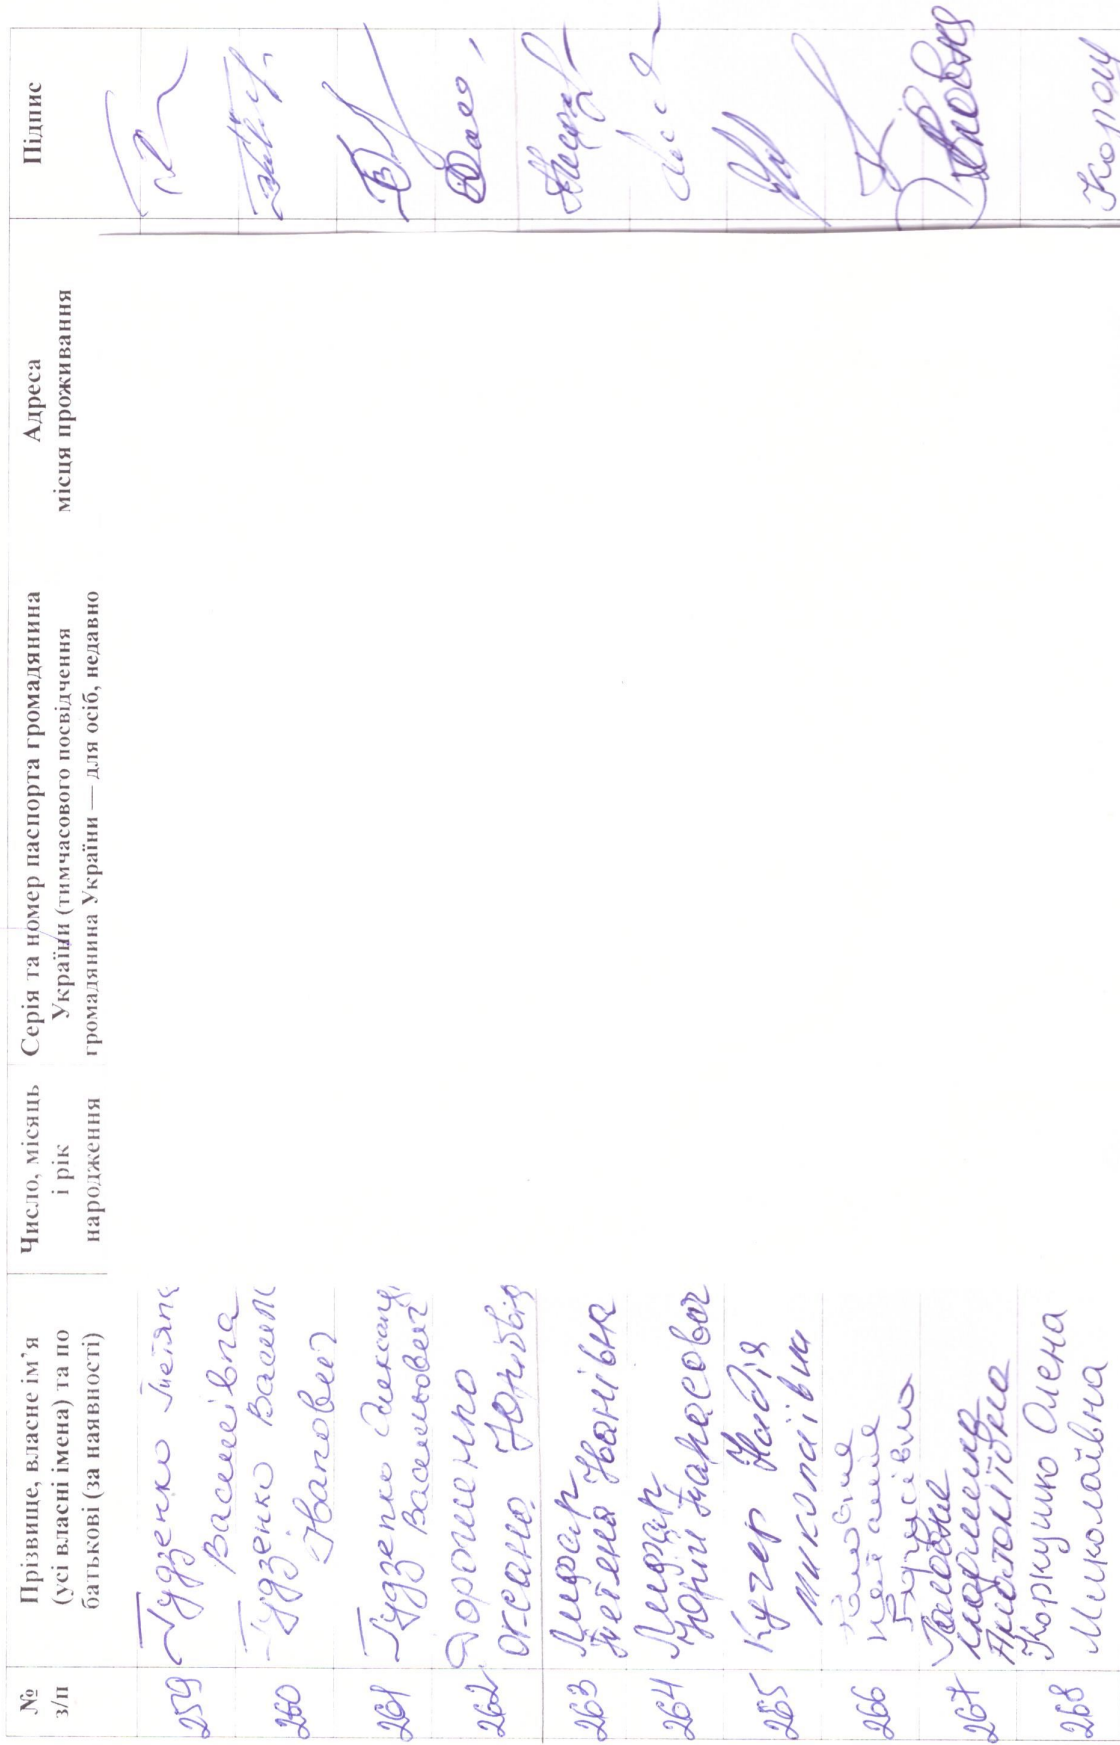 №
з/п
Прізвище, власне ім’я
(усі власні імена) та по
батькові (за наявності)
Число, місяць
і рік
народження
Серія та номер паспорта громадянина
України (тимчасового посвідчення
громадянина України — для осіб, недавно
Адреса
місця проживання
Підпис
259
Гудзенко Тетяна
Василівна
260
Гудзенко Васил
Іванович
261
Гудзенко Олександр
Васильович
262
Дорошенко
Оксана
263
Лифар
Тетяна Іванівна
264
Лифар
Юрій Тарасович
265
Кучер Надія
Миколаївна
266
267
Марина
Анатоліївна
268
Коркушко Олена
Миколаївна